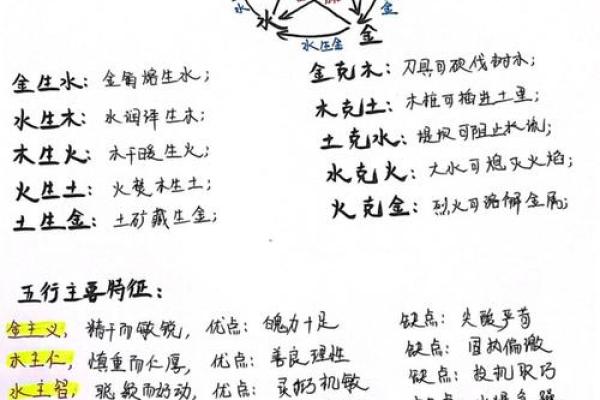 水
金
水
金
水生金
金生水：金销熔生水；
水生木：水润泽生木；
木生火：木干暖生火；
火生土：火焚木生土；
土生金：土矿藏生金；
金克木：刀具可砍伐树木；
木克土：木桩可插进土里；
土克水：堤坝可阻止水流；
水克火：大水可熄灭火焰；
火克金：烈火可溶解金属；
五行主要特征：
金主义，精干而敏锐，优点：魄力十足 缺点：尖酸严苛
木主仁，慎重而仁厚，优点：善良理性 缺点：固执偏激
水主智，聪敏而好动，优点：灵巧机敏 缺点：投机取巧